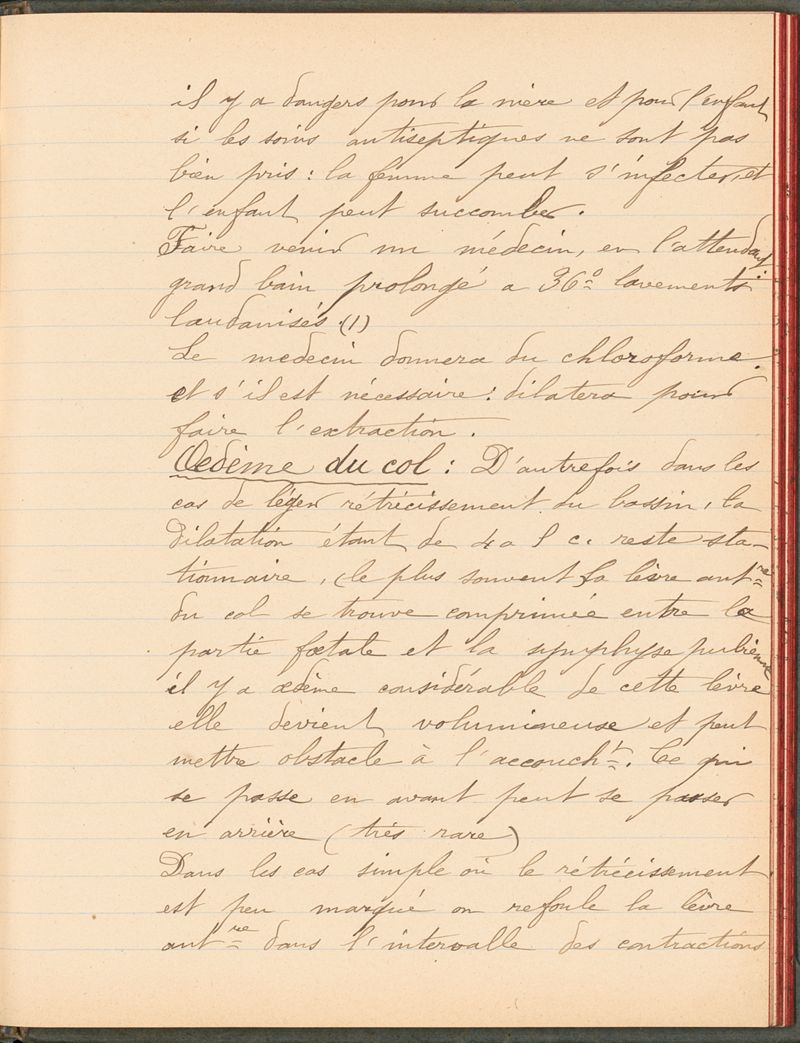 il y a dangers pour la mère et pour l'enfant
si les soins antiseptiques ne sont pas
bien pris : la femme peut s'infecter, et
l'enfant peut succomber.
Faire venir un médecin, en l'attendant
grand bain prolongé a 36° lavements
laudanisés. (1)
Le medecin donnera du chloroforme.
et s'il est nécessaire : dilatera pour
faire l'extraction.
Oedème du col : D'autrefois dans les
cas de léger rétrécissement du bassin, la
dilatation étant de 4 a 5 c. reste sta-
tionnaire, (le plus souvent) la lèvre antre
du col se trouve comprimée entre la
partie fœtale et la symphyse pubienne
il y a œdème considérable de cette lèvre
elle devient volumineuse et peut
mettre obstacle à l'accoucht. Ce qui
se passe en avant peut se passer
en arrière (très rare)
Dans les cas simple où le rétrécissement
est peu marqué on refoule la lèvre
antre dans l'intervalle des contractions